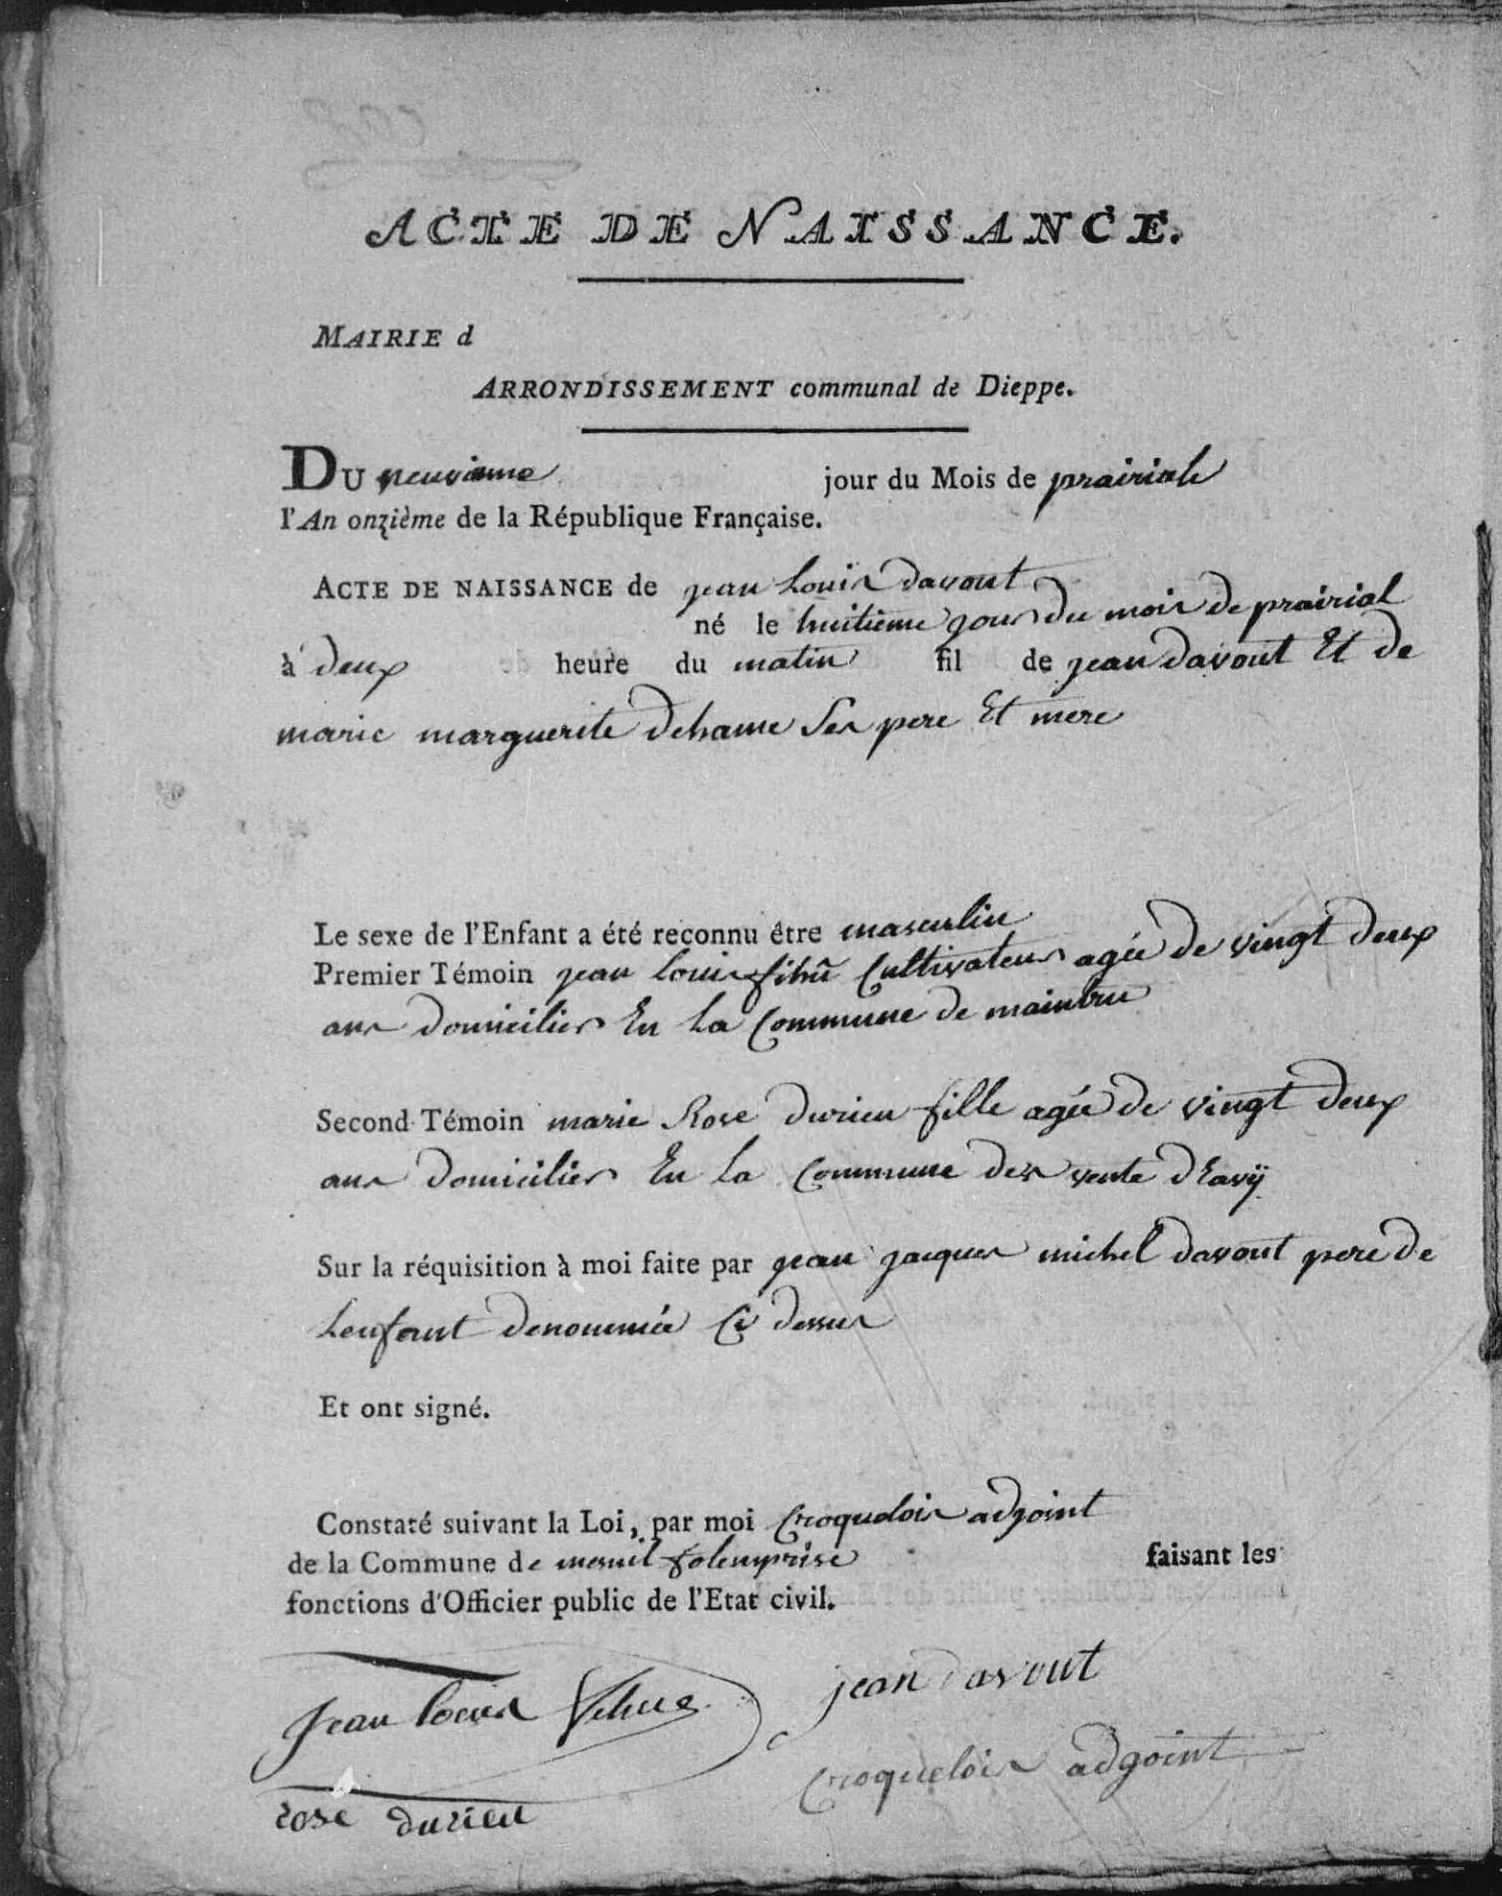 ACTE DE NAISSANCE.
MAIRIE d
ARRONDISSEMENT communal de Dieppe.
DU neuvieme jour du Mois de prairiale
l'An onzième de la République Française.
ACTE DE NAISSANCE de jean Louis davout
né le huitieme jour du mois de prairial
à deux heure du matin fil de jean davout Et de
marie marguerite dehame Ses pere Et mere
Le sexe de l'Enfant a été reconnu être masculin
Premier Témoin jean louis fihu Cultivateur agée de vingt deux
ans domicilier En La Commune de maintru
Second Témoin marie Rose durieu fille agée de vingt deux
ans domicilier En La Commune des vente dEavÿ
Sur la réquisition à moi faite par jean jacques michel davout pere de
Lenfant denommée Ci dessus
Et ont signé.
Constaté suivant la Loi, par moi Croquelois adjoint
de la Commune de mesnil folemprise faisant les
fonctions d'Officier public de l'Etat civil.
Jean louis jean davout
Croquelois adjoint
rose durieu